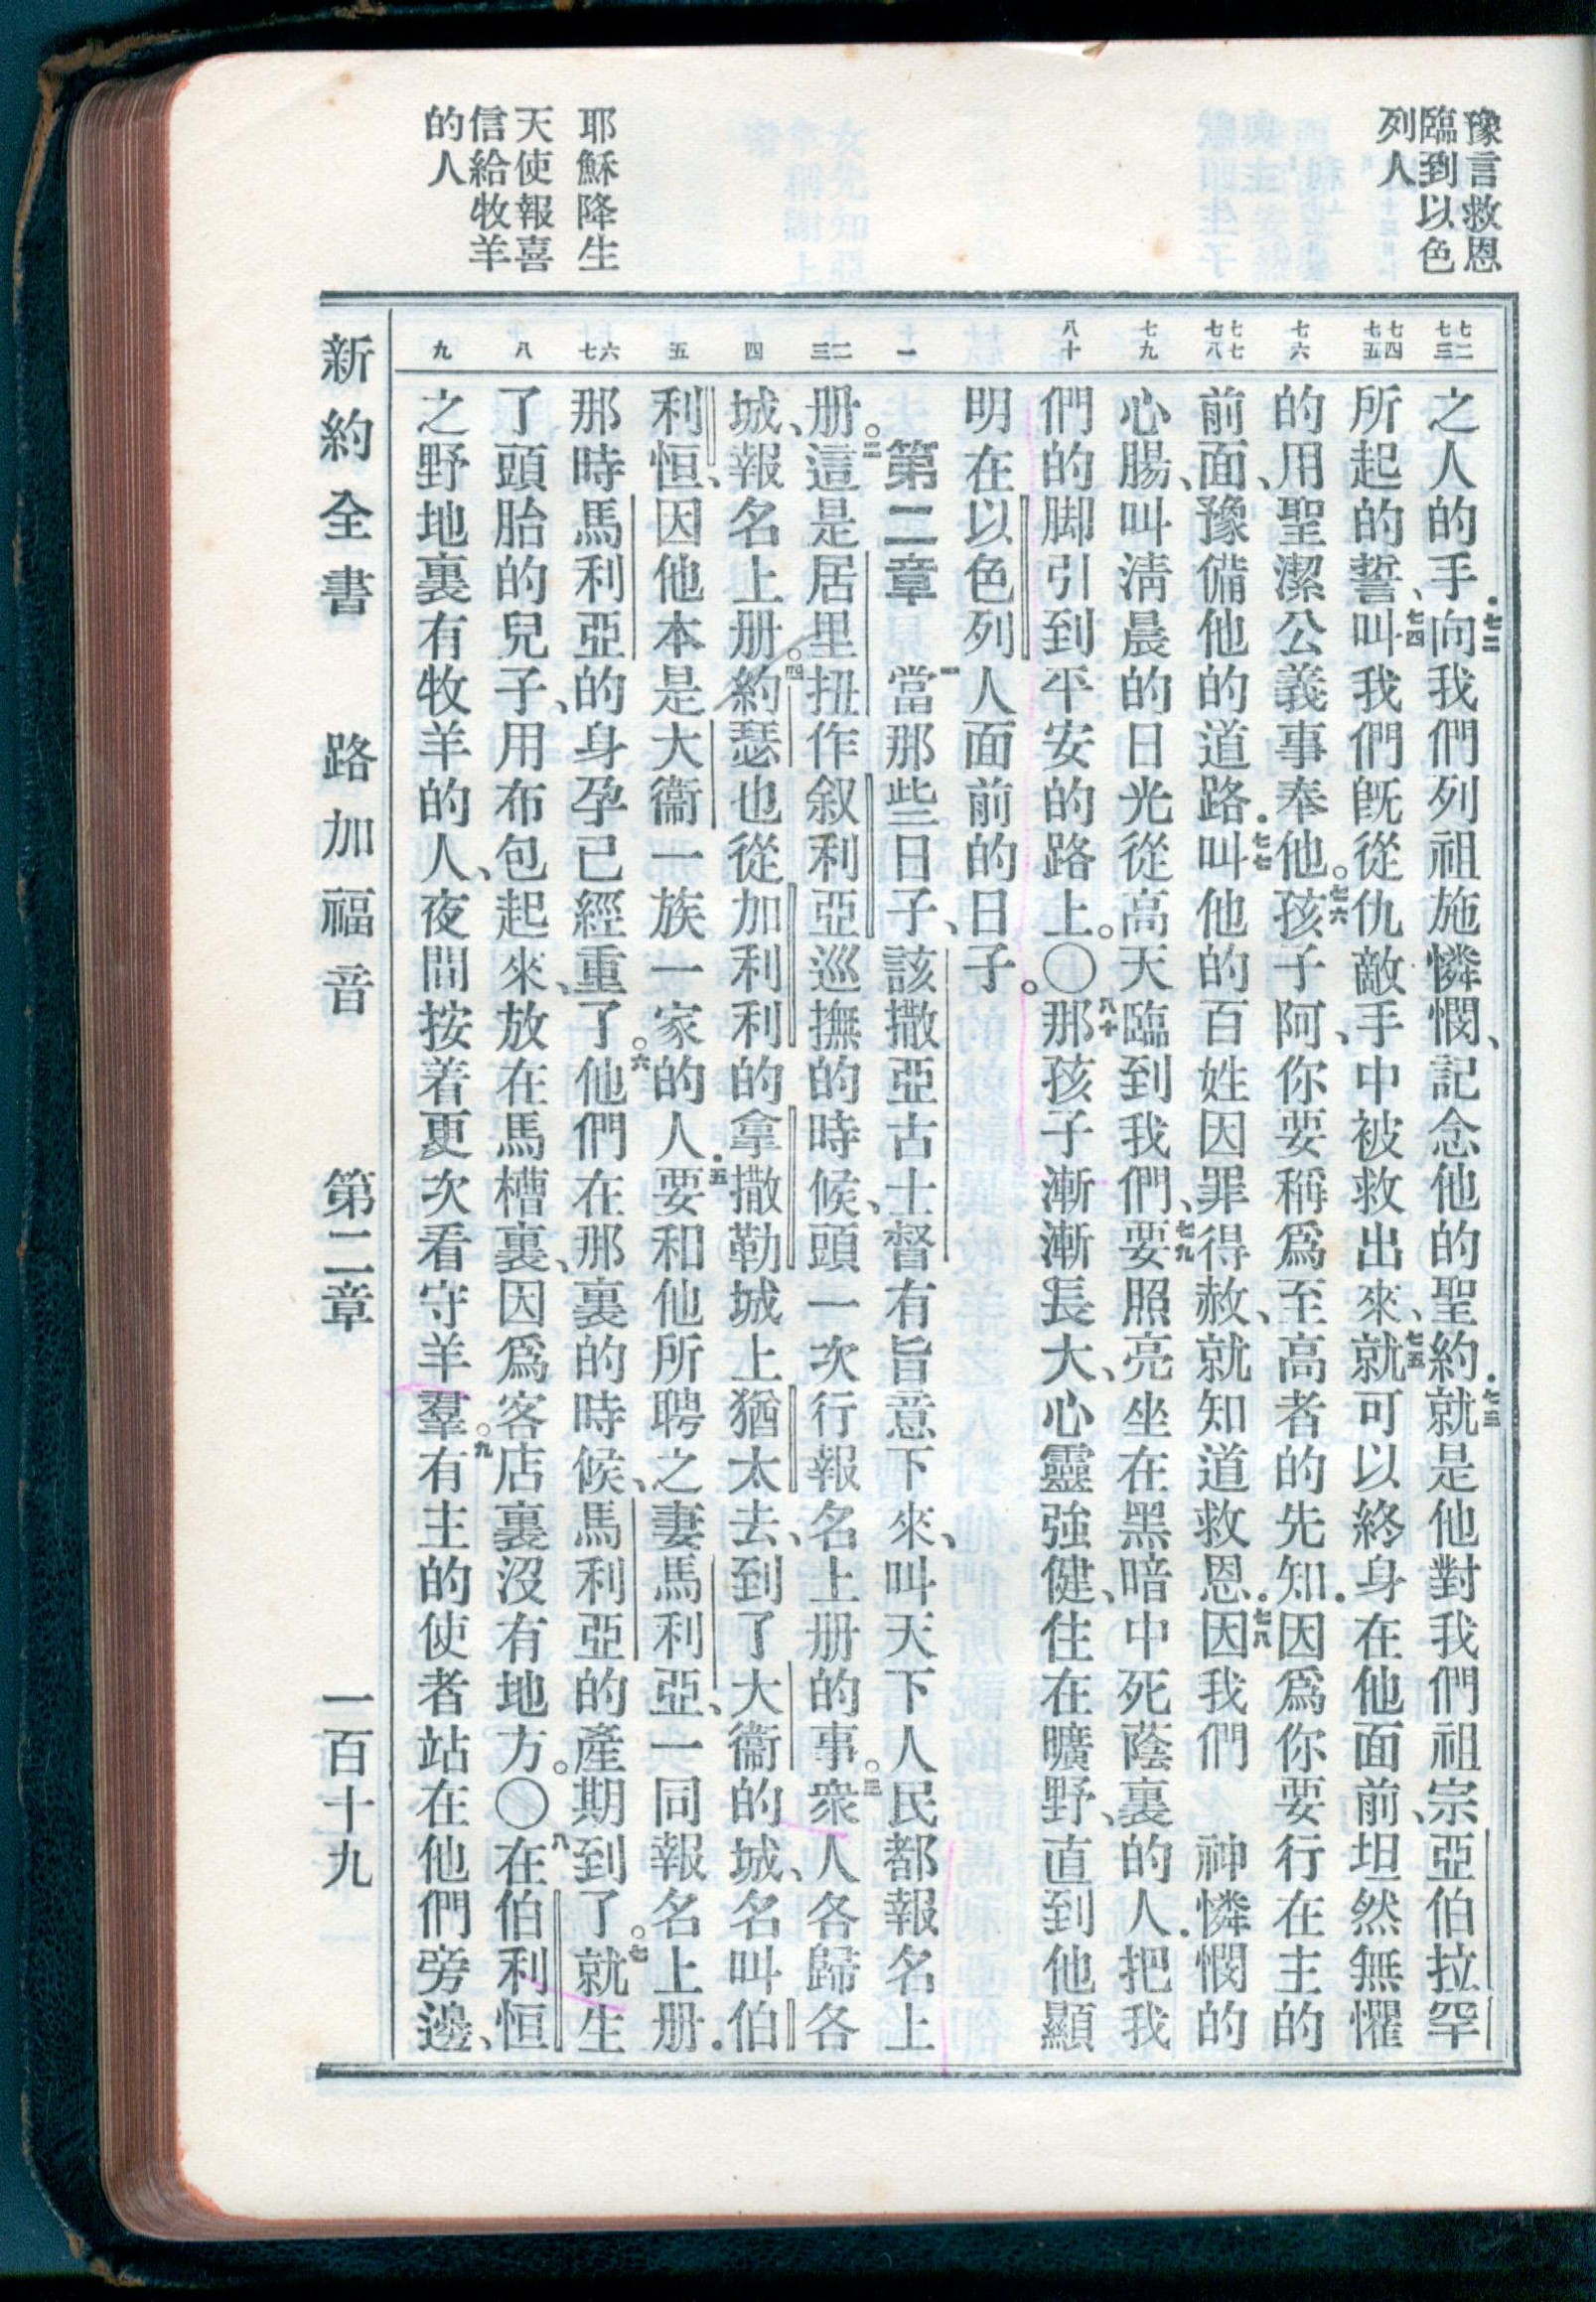 豫言救恩
臨到以色
列人
耶穌降生
天使報喜
信給牧羊
的人
七二 七三
七四 七五
七六
七七 七八
七九
八十
一
二 三
四
五
六 七
八
九
之人的手.七二向我們列祖施憐憫、記念他的聖約.七三就是他對我們祖宗亞伯拉罕
所起的誓、七四叫我們旣從仇敵手中被救出來、七五就可以終身在他面前、坦然無懼
的用聖潔公義事奉他。七六孩子阿、你要稱爲至高者的先知.因爲你要行在主的
前面、豫備他的道路.七七叫他的百姓因罪得赦、就知道救恩.七八因我們　神憐憫的
心腸、叫淸晨的日光從高天臨到我們、七九要照亮坐在黑暗中死蔭裏的人.把我
們的脚引到平安的路上。〇八十那孩子漸漸長大、心靈強健、住在曠野、直到他顯
明在以色列人面前的日子。
第二章　一當那些日子、該撒亞古士督有旨意下來、叫天下人民都報名上
册。二這是居里扭作叙利亞巡撫的時候、頭一次行報名上册的事。三衆人各歸各
城、報名上册。四約瑟也從加利利的拿撒勒城上猶太去、到了大衞的城、名叫伯
利恒、因他本是大衞一族一家的人.五要和他所聘之妻馬利亞、一同報名上册.
那時馬利亞的身孕已經重了。六他們在那裏的時候、馬利亞的產期到了。七就生
了頭胎的兒子、用布包起來、放在馬槽裏、因爲客店裏沒有地方。〇八在伯利恒
之野地裏有牧羊的人、夜間按着更次看守羊羣。九有主的使者站在他們旁邊、
新約全書　路加福音　第二章　一百十九